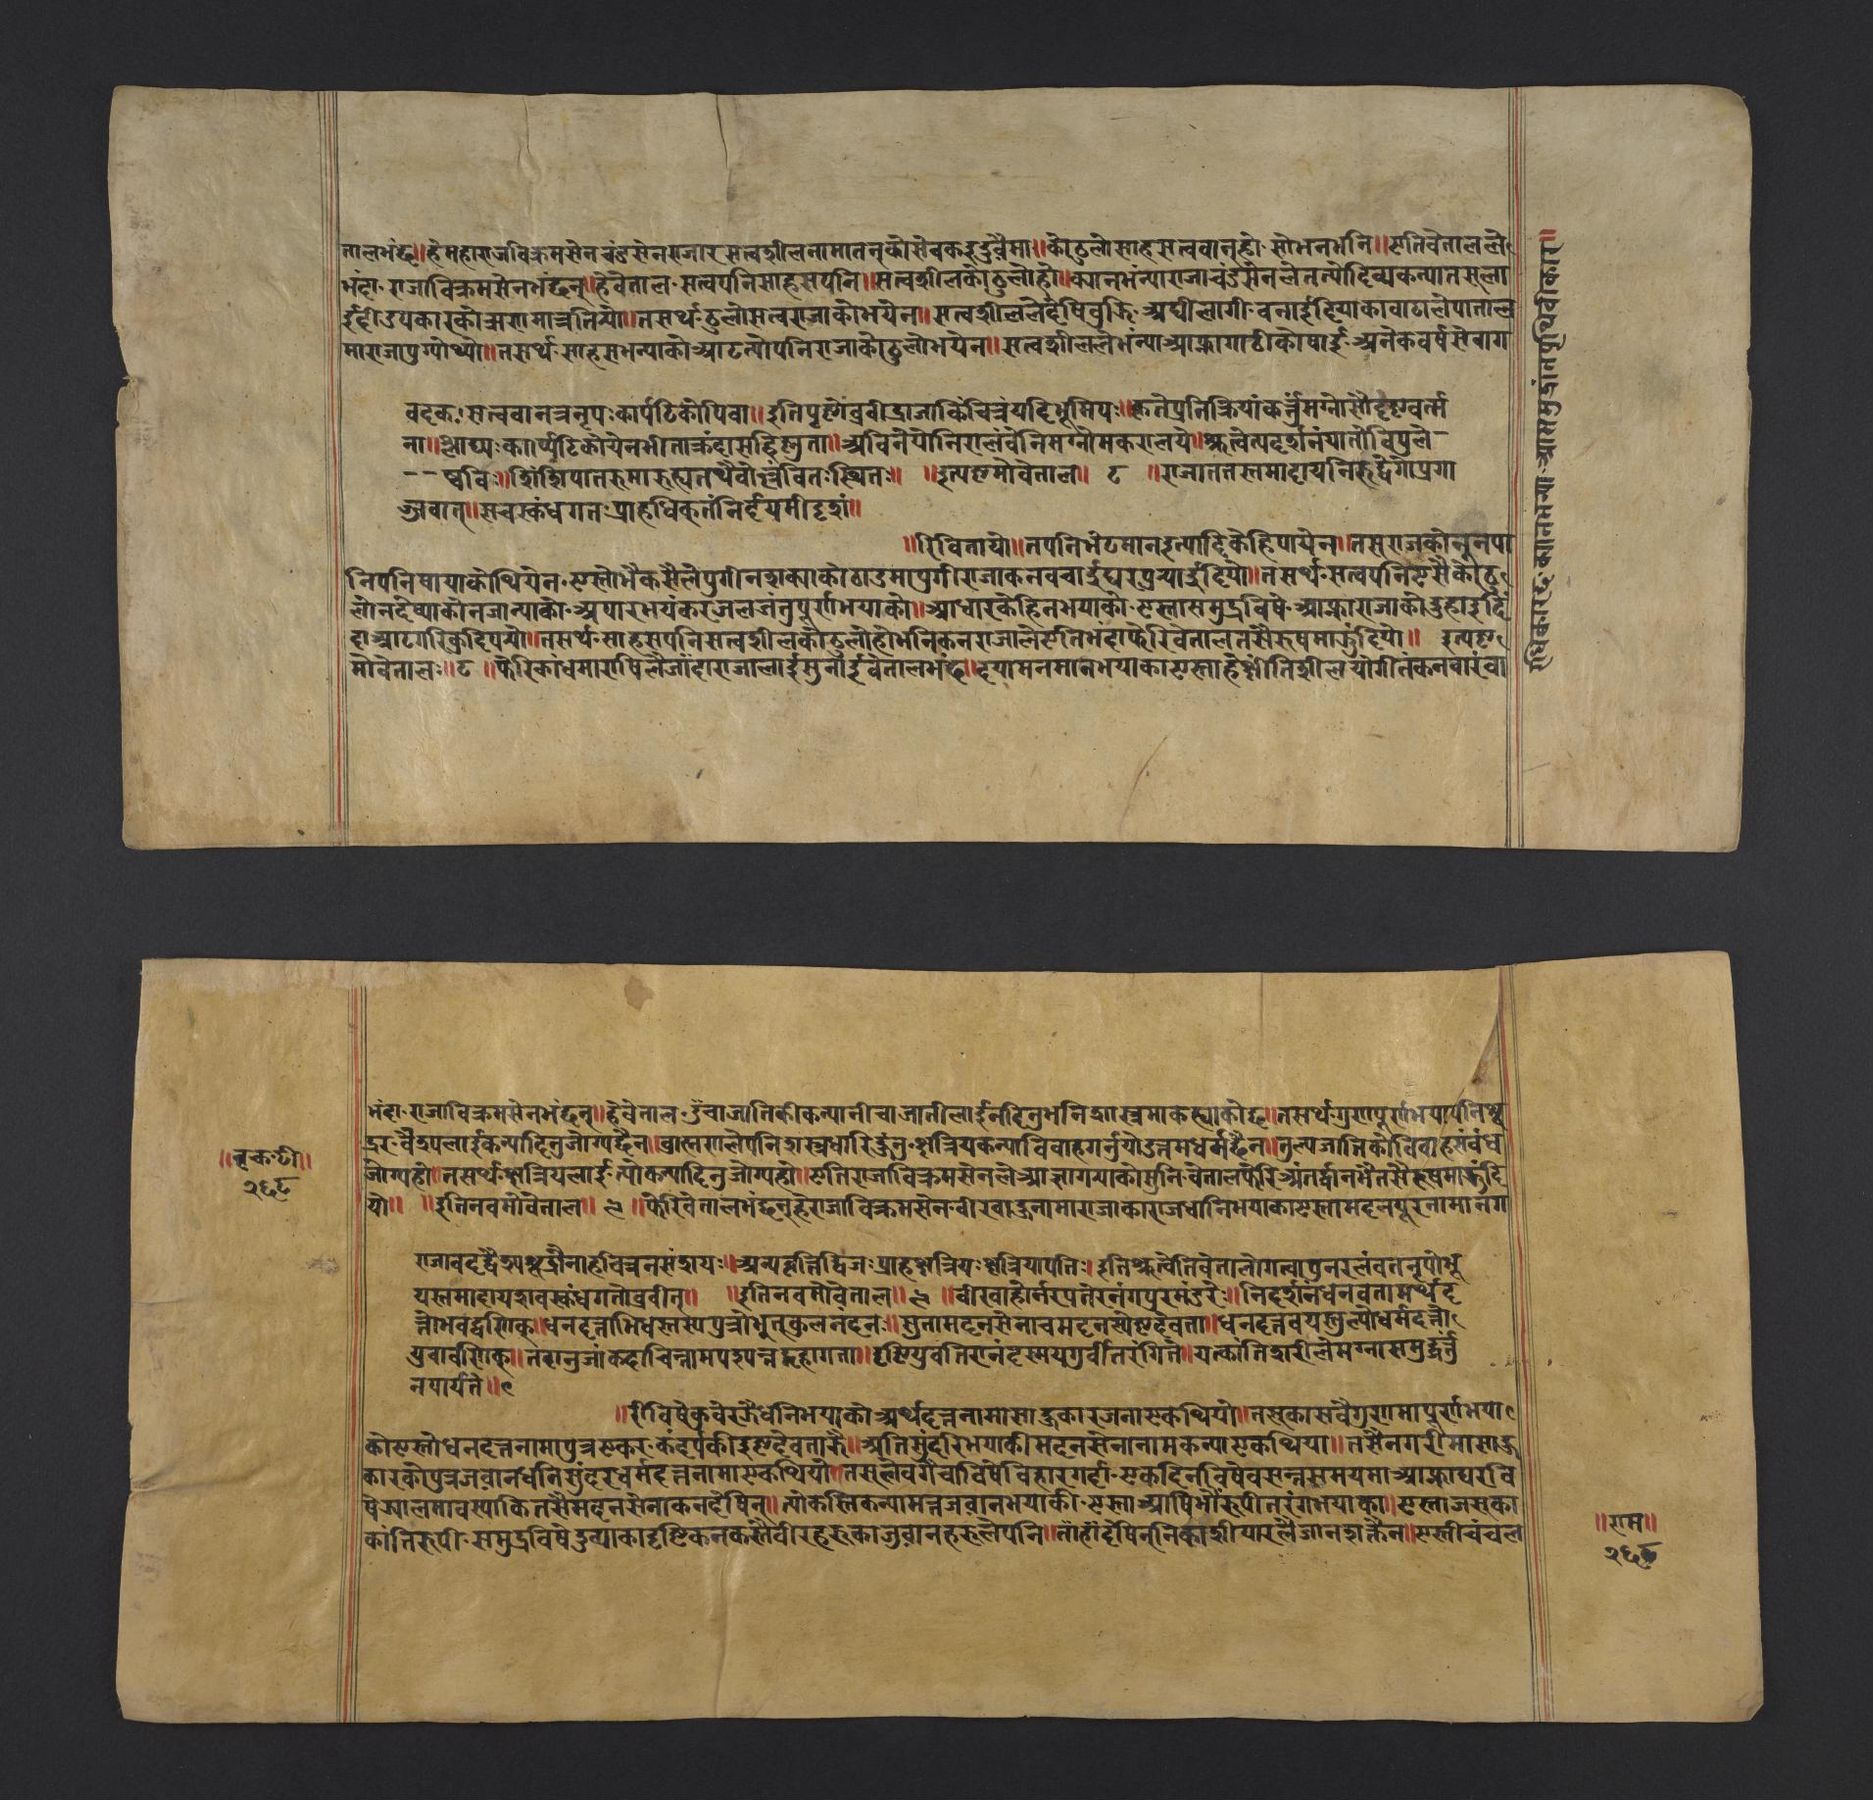 तालभंछ॥हेमहाराजविक्रमसेनचंडसेनराजारसत्वशीलनामातनकोसेवकइदुवैमा॥कोठुलोसाहसत्ववान्हो सोभनभनि॥एतिवेतालले
भंदा राजाविक्रमसेनभंछन्॥हेवेताल सत्वपनिसाहसपनि॥सत्वशीलकोठुलोहो॥क्यानभंन्याराजाचंडसेनलेतत्योदिव्यकन्यातसला
ईदीउपकारकोऋणमात्रतियो॥तसर्थ ठुलोसत्वराजाकोभयेन॥सत्वशीललेदेषिवुझि अघीलागी वनाईदियाकावाटालेपाताल
माराजापुग्योथ्यो॥तसर्थ साहसभन्याकोआटत्योपनिराजाकोठुलोभयेन॥सत्वशीललेभंन्याआफ्नागाठीकोषाई अनेकवर्षसेवाग
वदकः सत्ववानत्रनृपः कार्पटिकोपिवा॥इतिपृष्टोब्रवीद्राजाकिंचित्रंयदिभूमिपः॥कृतेप्रतिक्रियांकर्त्तुंमग्नोसौदृष्टवर्त्म
ना॥श्लाघ्यः कार्प्पटिकोयेनभीताक्रंदासहिष्णुता॥अविनेयोनिरालंवेनिमग्नोमकरालये॥श्रुत्वेत्यदर्शनंयातोविपुले-
--ष्ववि॥शिंशिपातरुमारुह्यतथैवोल्लंवितः स्थितः॥ ॥इत्यष्टमोवेताल॥ ८ ॥राजाततस्तमादायनिरुद्वेगोप्रगा
ञ्जवात्॥सचस्कंधगतः प्राहधिकृतंनिर्दयमीदृशं॥
॥रिवितायो॥तपनिभेटमानइत्यादिकेहिपायेन॥तसराजकोनूनपा
निपनिषायाकोथियेन एस्तोभैकसैलेपुगीनशक्याकोठाउमापुगीराजाकनवचाईघरपुर्‍याईदियो॥तसर्थ सत्वपनिएसैकोठु
लोनदेष्याकोनजान्याको अपारभयंकरजलजंतुपूर्णभयाको॥आधारकेहिनभयाको एस्तासमुद्रविषे आफ्नाराजाकोदुहाइदि
दाआटगरिकुदिपर्‍यो॥तसर्थ साहसपनिसत्वशीलकोठुलोहोभनिकनराजालेएतिभंदाफेरिवेतालतसैरुषमाझुंदियो॥ इत्यष्ट
मोवेताल॥८ ॥फेरिकांधमाराषिलैजांदाराजालाईसुनाईवेतालभंछ॥दयामनमानभयाकाएस्ताहेक्षांतिशीलयोगीतंकनवारंवा
धिकारहुंद्यानभयाआसमुद्रांतपृथिवीकारा॥
भंदा राजाविक्रमसेनभंछन्॥हेवेताल उँचाजातिकीकन्यानीचाजातीलाईनदिनुभनिशास्त्रमाकह्याकोछ॥तसर्थगुणपूर्णभयापनिशू
द्रर वैश्यलाईकन्यादिनुजोग्यछैन॥ब्राह्मणलेपनिशस्त्रधारिहुंनु क्षत्रियकन्याविवाहगर्नुयोउत्तमधर्मछैन॥तुल्यजातिकोविवाहसंबंध
जोग्यहो॥तसर्थक्षत्रियलाई त्योकन्यादिनुजोग्यहो॥एतिराजाविक्रमसेनलेआज्ञागर्‍याकोसुनि वेतालफेरिअंतर्द्धानभैतसैरुषमाझुंदि
यो॥ ॥इतिनवमोवेताल॥ ९ ॥फेरिवेतालभंछनहेराजाविक्रमसेन वीरवाहुनामाराजाकाराजधानिभयाकाएस्तामदनपूरनामानग
राजावदद्वैश्यशूद्रौनार्हावित्रनसंशयः॥अन्यवृत्तिर्द्विजः प्राहक्षत्रियः क्षत्रियापतिः॥इतिश्रुत्वेतिवेतालोगत्वापुनरलंवतनृपोभू
यस्तमादायशवस्कंधगतोब्रवीत्॥ ॥इतिनवमोवेताल॥ ९ ॥वीरवाहोर्न्नरपतेरनंगपुरमंडरे॥निदर्शनंधनवतामर्थद
त्तोभवद्वणिक्॥धनदत्ताभिधस्तस्यपुत्रोभूत्कुलनंदनः॥सुतामदनसेनाचमदनस्येष्टदेवता॥धनदत्तवयस्तुल्योधर्मदत्तो
युवावणिक्॥तस्यानुजांकदाचिन्नामपश्यन्नद्गृहागता॥दृष्टियुवतिरानंदस्मयगुर्वीतरंगिते॥यत्कांतिवारीलेमग्नासमुद्धर्त्तुं
नपार्यते॥९
॥रीविषेकुवेरझैधनिभयाको अर्थदत्तनामासाहुकारजनाएकथियो॥तस्कासवैगुणमापूर्णभया
कोएस्तोधनदत्तनामापुत्रएकर कंदर्पकीइष्टदेवताझै॥अतिसुंदरिभयाकीमदनसेनानामकन्याएकथिया॥तसैनगरीमासाहु
कारकोपुत्रजवानधनिसुंदरधर्मदत्तनामाएकथियो॥तसलेवगैंचाविषेविहारगर्दा एकदिनविषेवसन्तसमयमाआफ्नाघरवि
षेआलमावस्याकितसैमदनसेनाकनदेषिन्॥त्योकस्तिकन्यामत्तजवानभयाकी एस्ताआषिभौंरूपीतरंगभयाका॥एस्ताजसका
कांतिरूपी समुद्रविषेडुव्याकादृष्टिकनकस्तैवीरहरूकाजुवानहरूलेपनि॥ताहाँदेषिननिकाशीपारलैजानशक्तैन॥एस्तीचंचल
॥वृकथी॥
२६८
॥राम॥
२६८